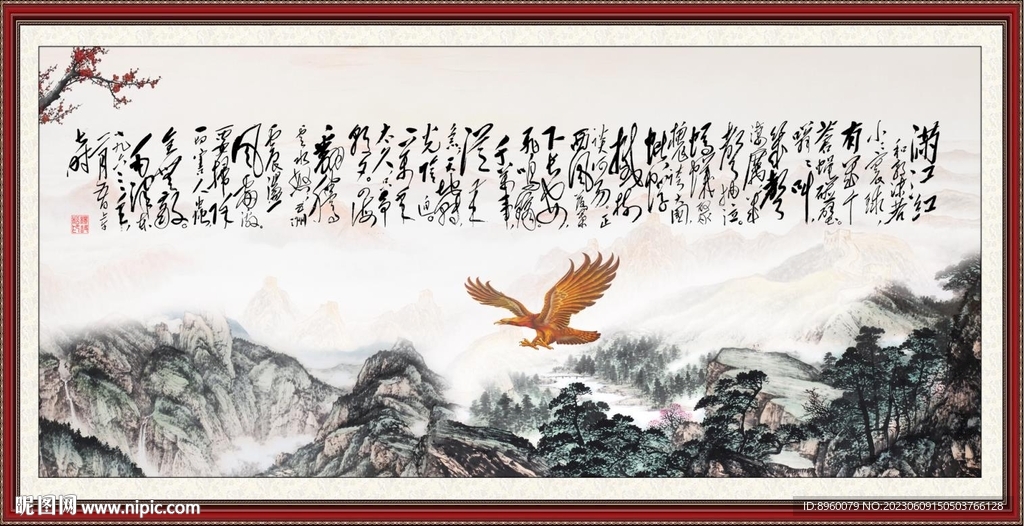 满江红
和郭沫若
小小寰球,
有几个
苍蝇碰壁。
嗡嗡叫
几声
凄厉,几
声抽泣。
蚂蚁缘
槐夸大国
蚍蜉
撼树
谈何易。正
西风落葉
下长安,
飞鸣镝。
从来
急天地转,
光阴迫。
一万年
太久,只争
朝夕。四海
翻腾
云水怒,五洲
震荡
风雷激。
要扫除
一切害人虫
全无敌。
毛泽东
一九六三年
昵图网 www.nipic.com
ID:8960079 NO:20230609150503766128